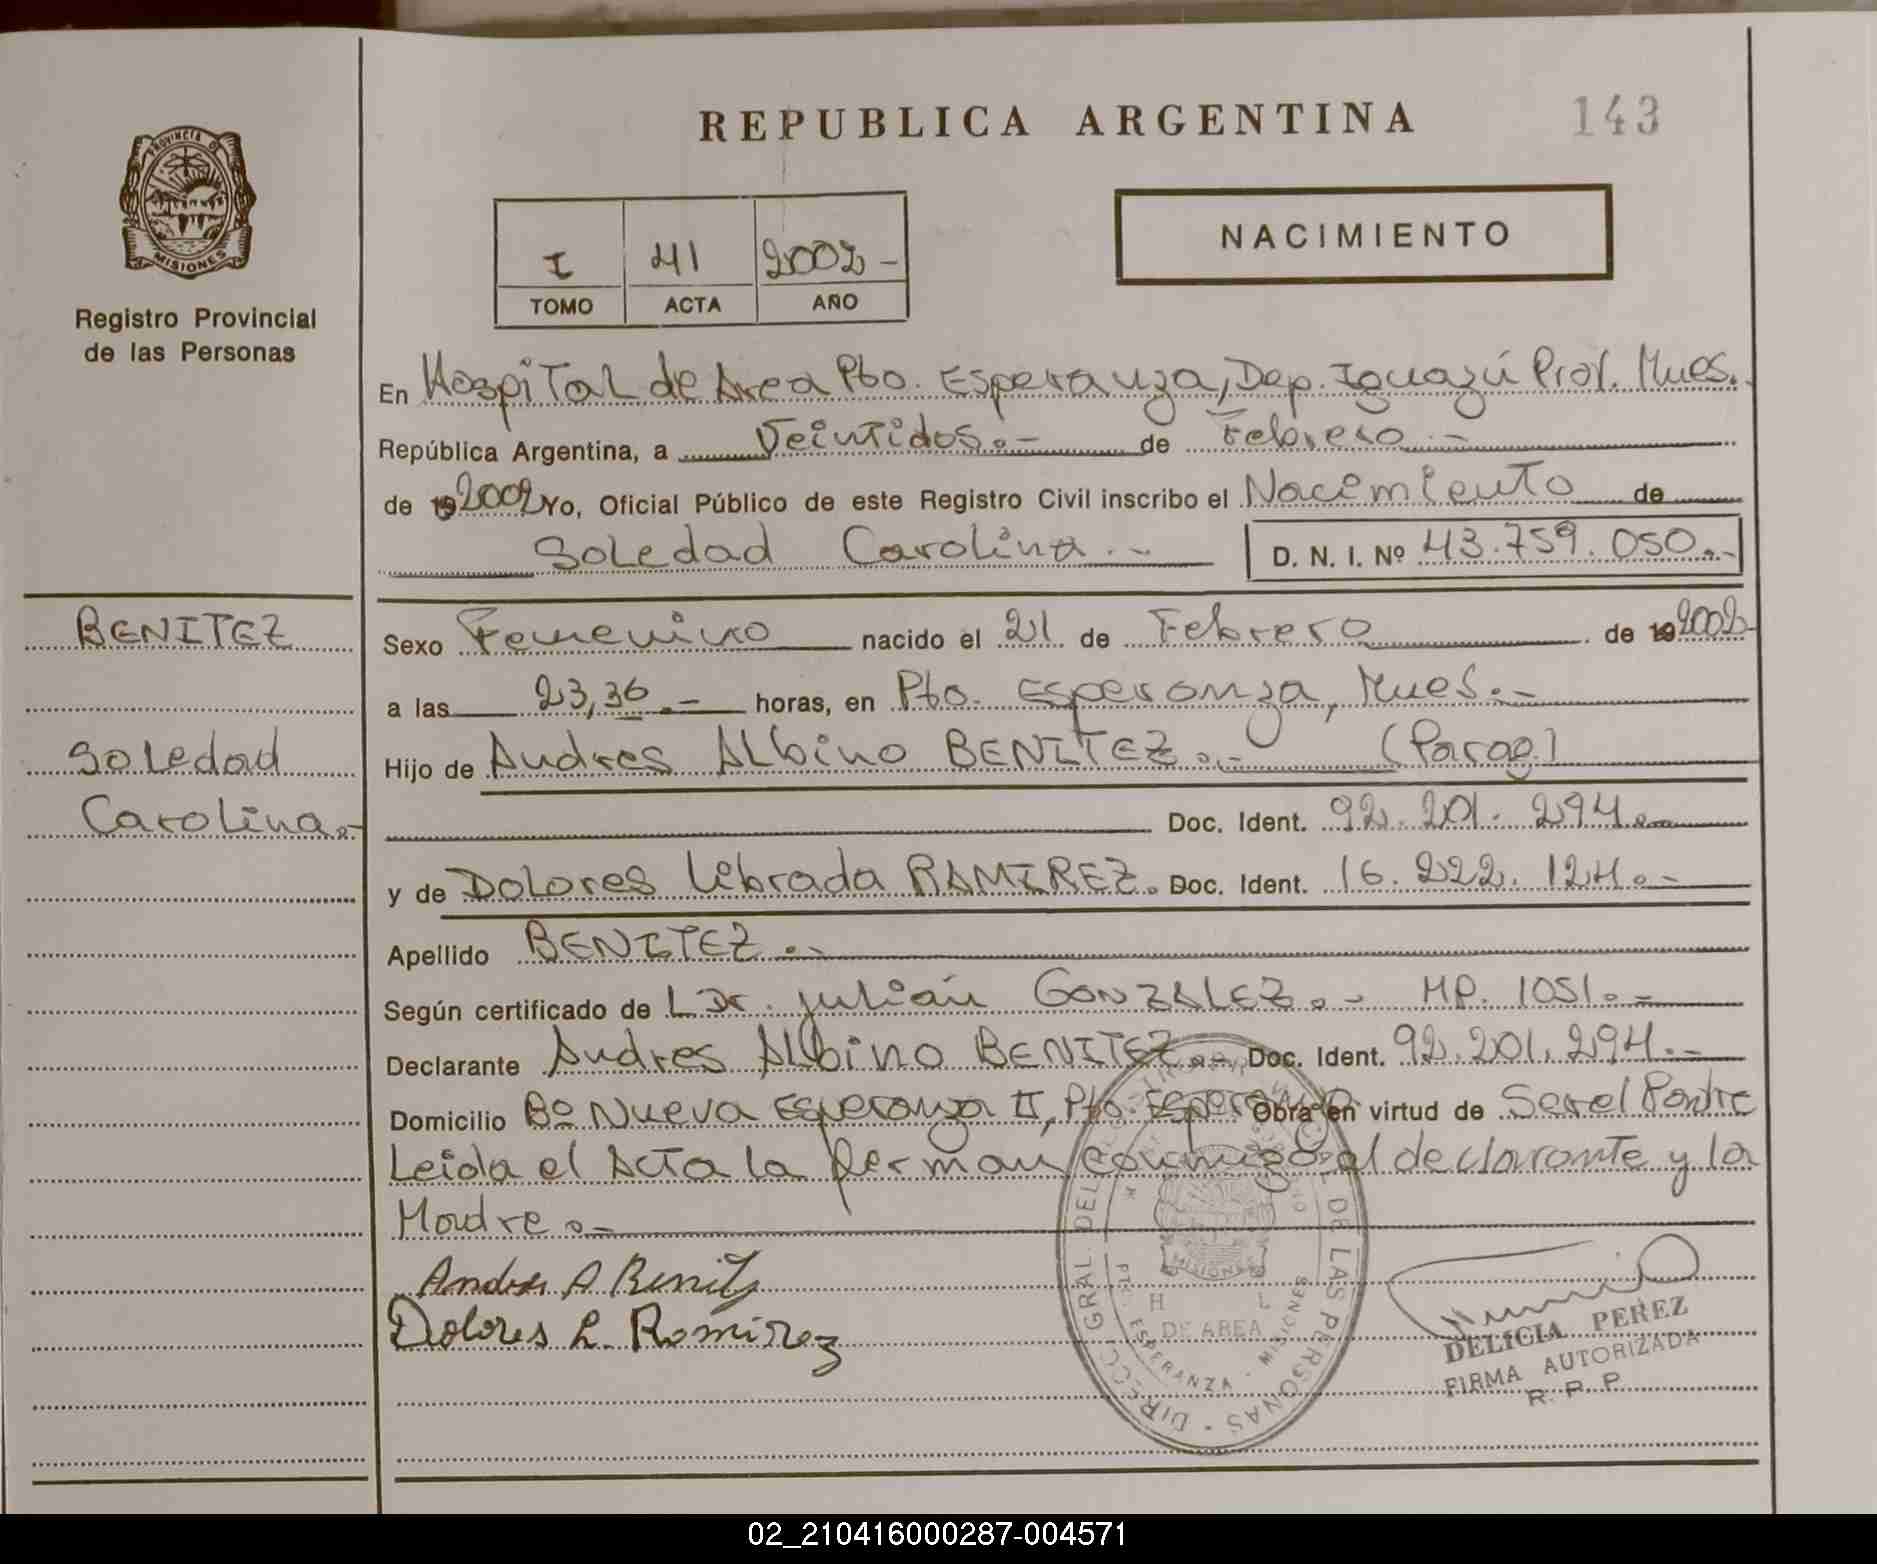 REPUBLICA ARGENTINA
143
PROVINCIA DE
MISIONES
Registro Provincial
de las Personas
I 41 2002-
TOMO ACTA AÑO
NACIMIENTO
En Hospital de Area Pto. Esperanza, Dep. Iguazú Prov. Mnes.
República Argentina, a Veintidos.- de Febrero.-
de 192002 Yo, Oficial Público de este Registro Civil inscribo el Nacimiento de
Soledad Carolina.-
D. N. I. Nº 43.759.050.-
BENITEZ
Soledad
Carolina.-
Sexo Femenino nacido el 21 de Febrero de 192002-
a las 23,36.- horas, en Pto. Esperanza, Mnes.-
Hijo de Andres Albino BENITEZ.- (Parag.)
Doc. Ident. 92.201.294.-
y de Dolores Librada RAMIREZ. Doc. Ident. 16.222.124.-
Apellido BENITEZ.-
Según certificado de Dr. Julián GONZALEZ.- MP. 1051.-
Declarante Andres Albino BENITEZ.- Doc. Ident. 92.201.294.-
Domicilio Bº Nueva Esperanza II, Pto. Esperanza Obra en virtud de Ser el Padre
Leida el Acta la firman conmigo el declarante y la
Madre.-
Andres A Benitez
Dolores L. Ramirez
DIRECC. GRAL. DEL DE LAS PERSONAS
MISIONES
H L
DE AREA
PTO. ESPERANZA - MISIONES
DELICIA PEREZ
FIRMA AUTORIZADA
R. P. P.
02_210416000287-004571